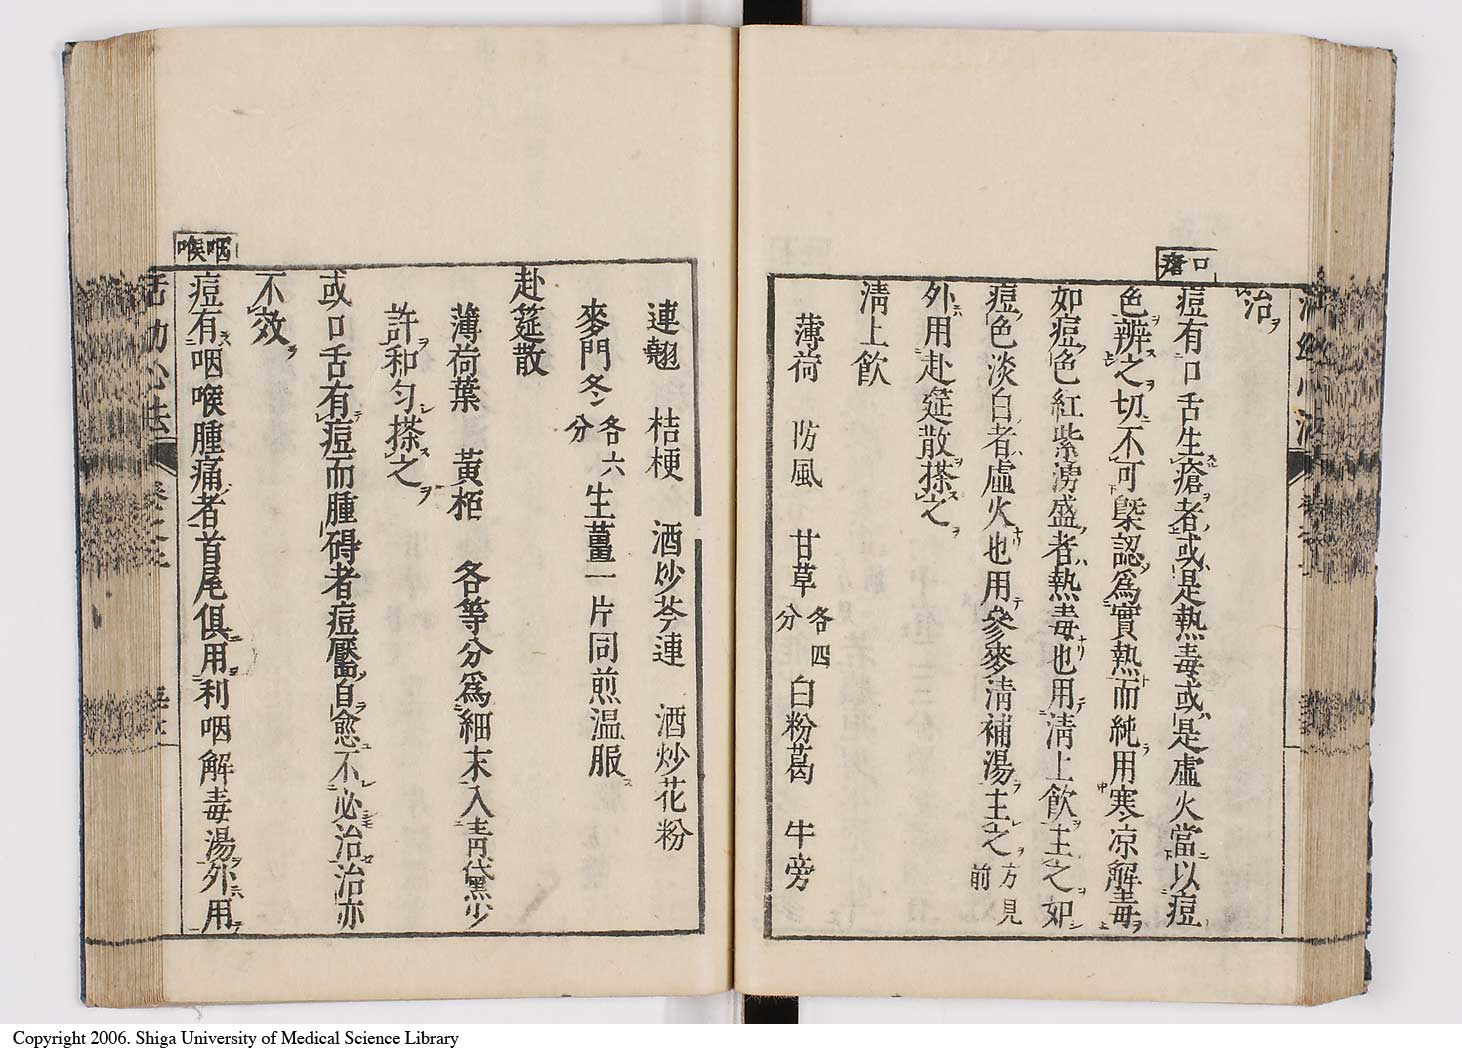 口瘡
治
痘有口舌生瘡者或是熱毒或是虛火當以痘
色辨之切不可槩認爲實熱而純用寒凉解毒
如痘色紅紫湧盛者熱毒也用淸上飮主之如
痘色淡白者虛火也用參麥淸補湯主之方見前
外用赴筵散搽之
淸上飮
薄荷 防風 甘草各四分 白粉葛 牛旁
連翹 桔梗 酒炒芩連 酒炒花粉
麥門冬各六分 生薑一片同煎温服
赴筵散
薄荷葉 黃柏 各等分爲細末入靑黛少
許和勻搽之
或口舌有痘而腫碍者痘靨自愈不必治治亦
不效
咽喉
痘有咽喉腫痛者首尾俱用利咽解毒湯外用
活幼心法
Copyright 2006. Shiga University of Medical Science Library